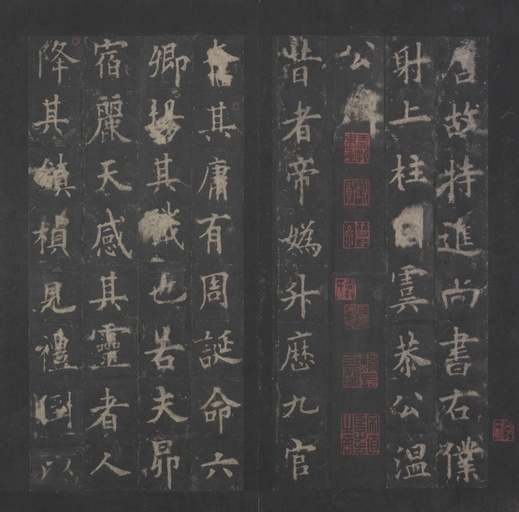 故特進尚書右僕
射上柱國虞恭公温
公碑
昔者帝媯升厯九官
其庸有周誕命六
卿揚其職也若夫昴
宿麗天感其靈者人
降其鎮楨見禮以